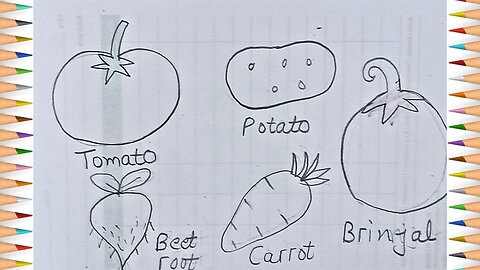 Tomato
Potato
Beet
root
Carrot
Brinjal